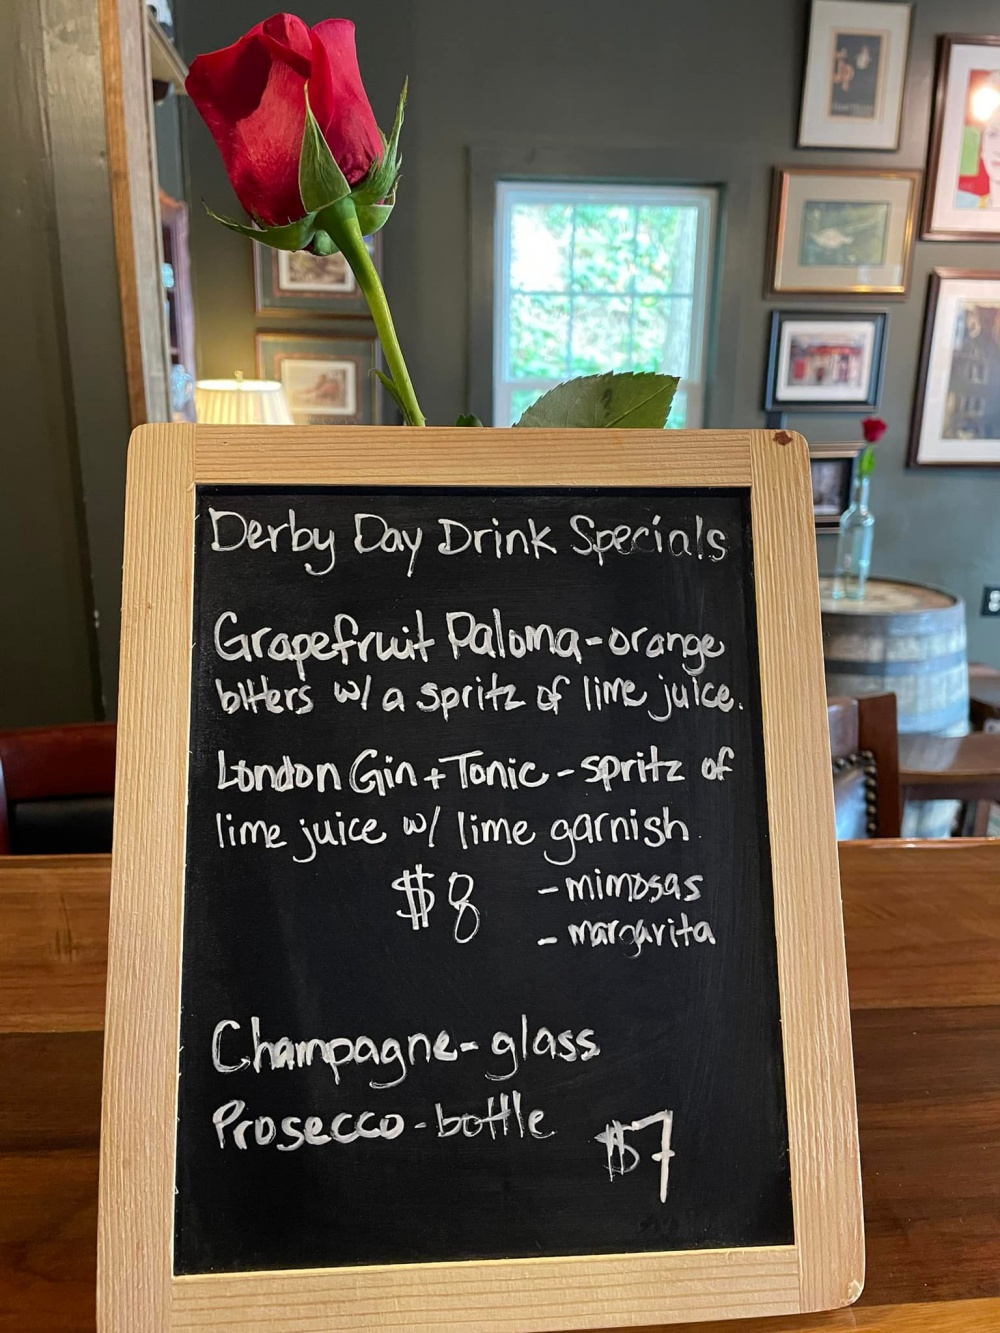 Derby Day Drink Specials
Grapefruit Paloma - orange
bitters w/ a spritz of lime juice.
London Gin + Tonic - spritz of
lime juice w/ lime garnish
$8
- mimosas
- margarita
Champagne - glass
Prosecco - bottle
$7